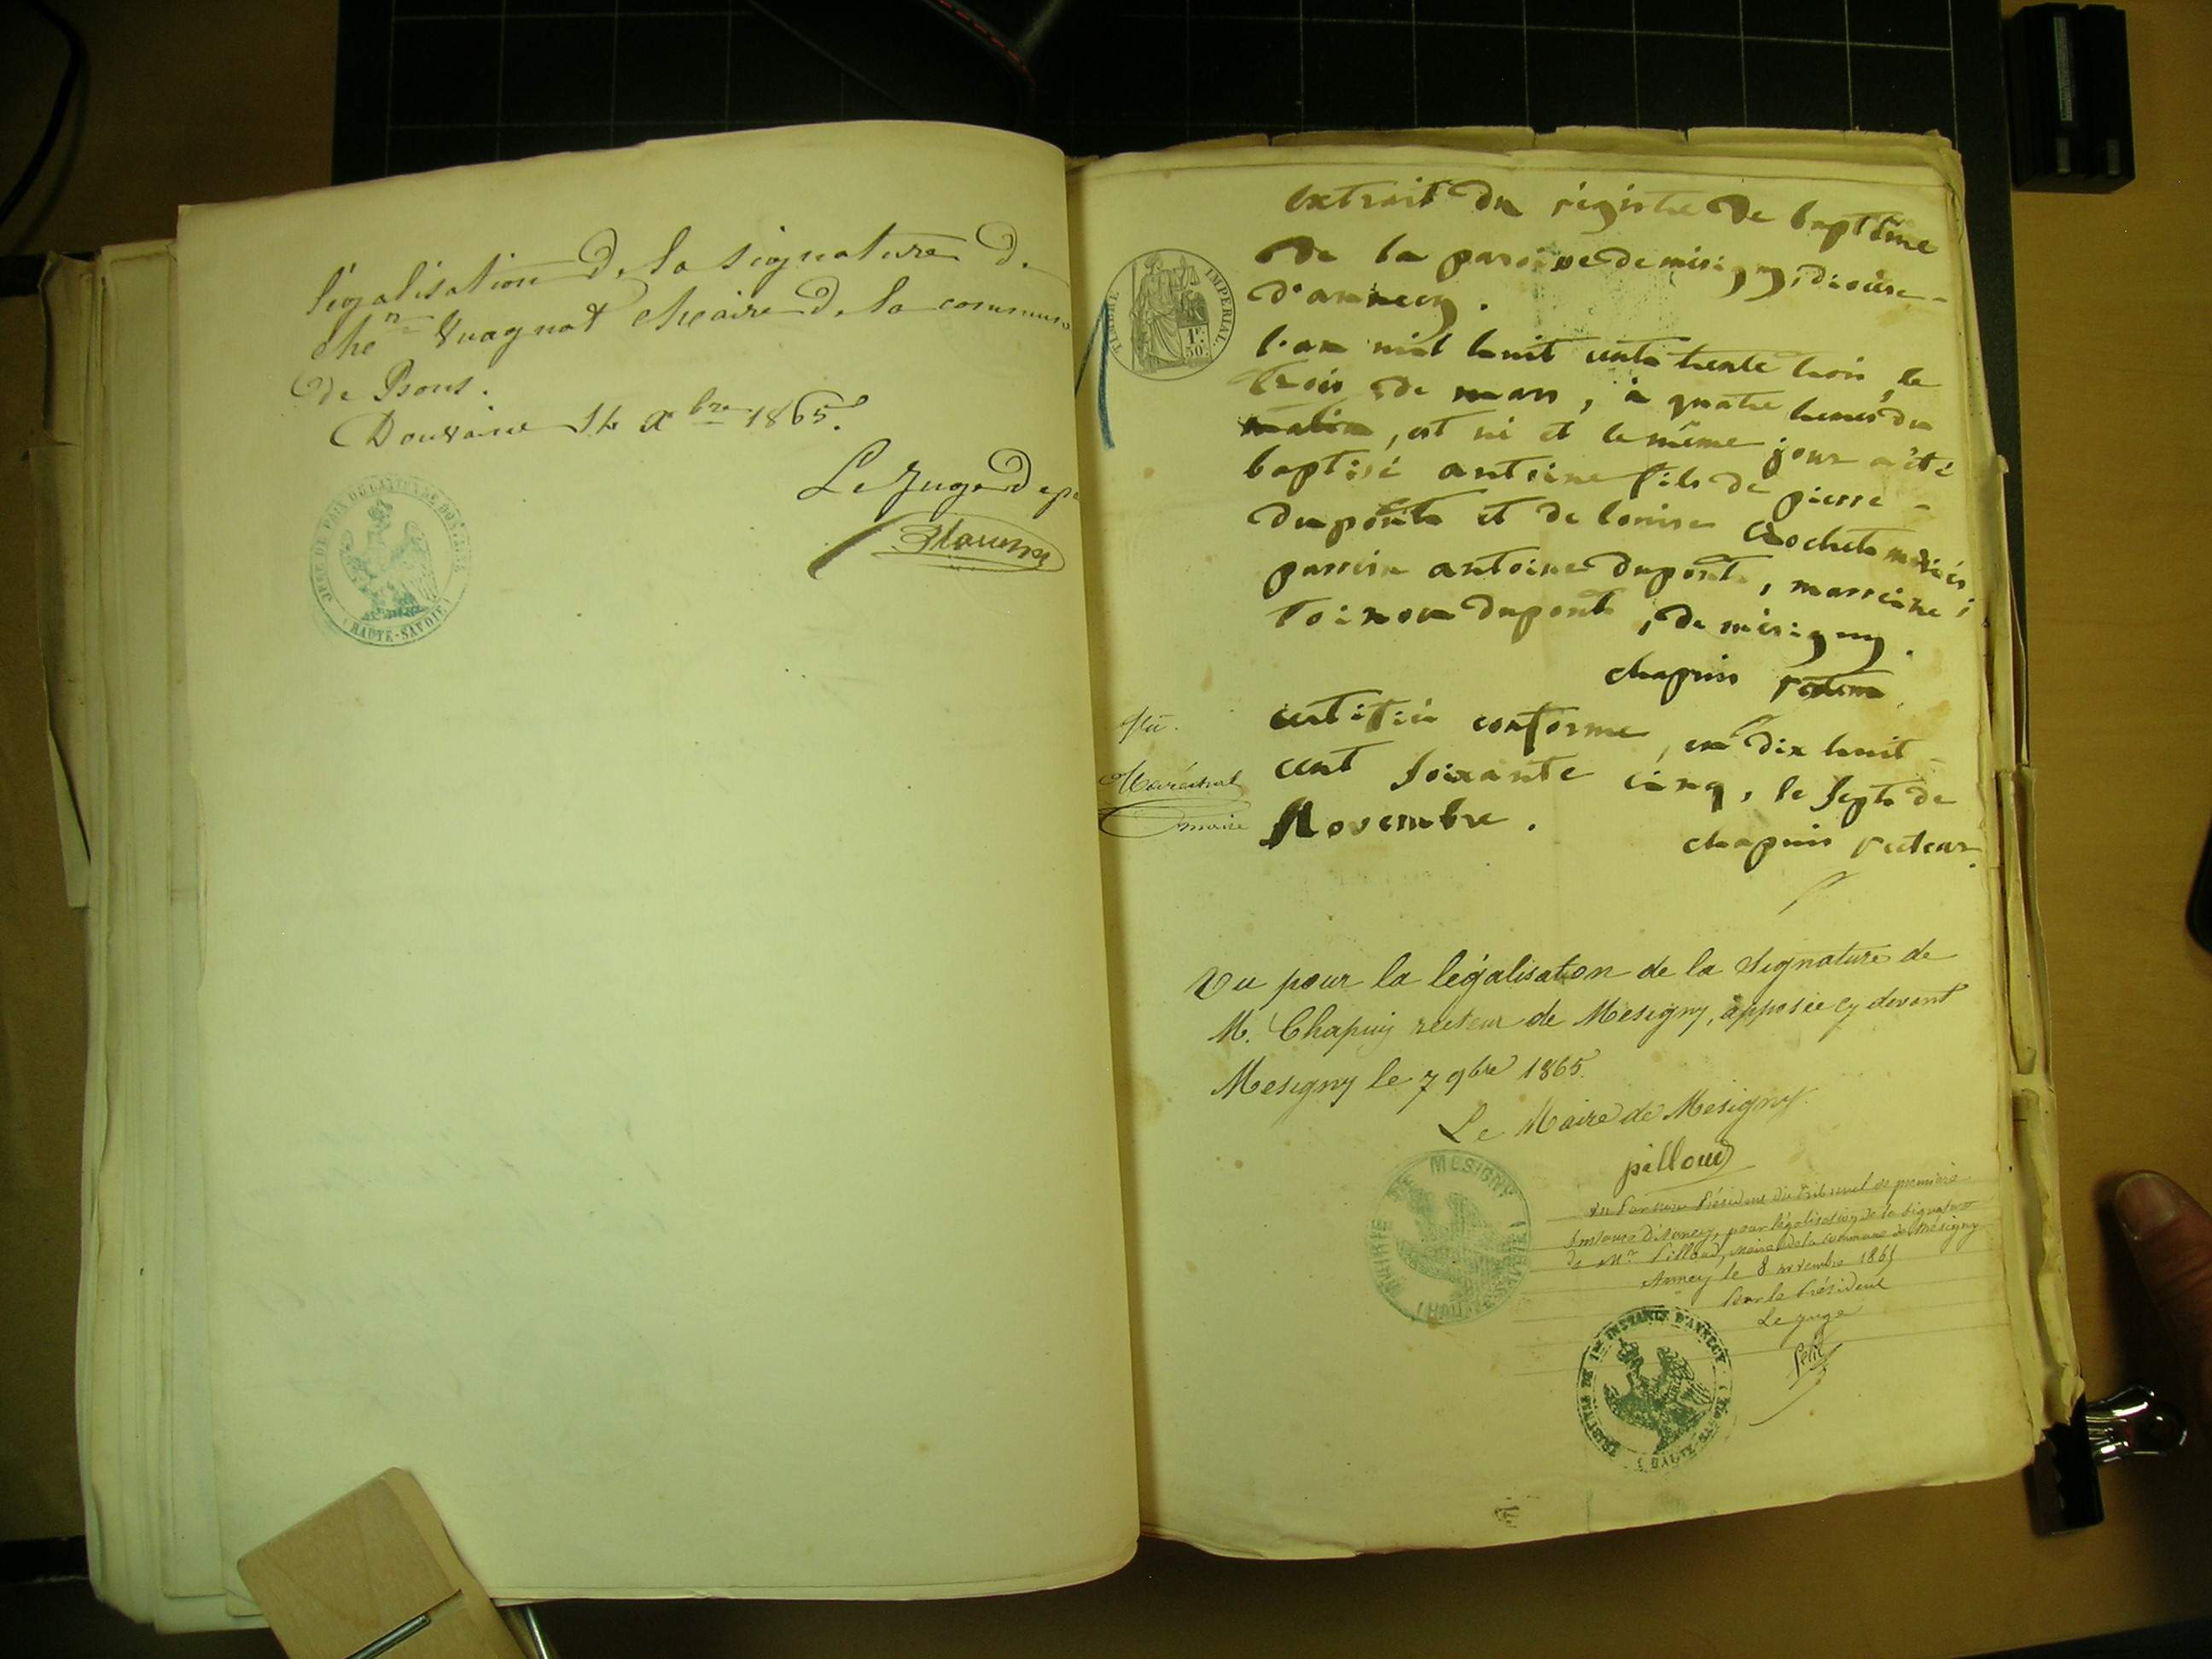 légalisation de la signature de
Quagnat Maire de la commune
de
Douvaine 1865.
Le Juge de
JUSTICE DE PAIX DU CANTON DE DOUVAINE
(HAUTE-SAVOIE)
TIMBRE IMPERIAL.
1F.
50c.
extrait du régistre de baptême
de la paroisse de mésigny, diocèse
d'annecy.
l'an mil huit cents trente trois, le
trois de mars, à quatre heures du
matin, est né et le même jour a été
baptisé antoine fils de pierre
dupont et de louise Crochet mariés;
parrin antoine dupont, marreine;
toinon dupont, de mésigny.
chapuis recteur
certifié conforme, en dix huit
cent soixante cinq, le sept de
Novembre.
chapuis recteur.
Vu.
Maréchal
maire
Vu pour la légalisation de la signature de
M. Chapuis recteur de Mesigny, apposée cy devant
Mesigny le 7 9bre 1865.
Le Maire de Mesigny
pilloud
MAIRIE DE MESIGNY (HAUTE-SAVOIE)
Vu Par nous Président du Tribunal de première
Instance d'Annecy, pour légalisation de la signature
de Mr Pilloud, Maire de la commune de Mésigny
Annecy le 8 novembre 1865
Pour le Président
Le juge
Petit
TRIBUNAL DE 1RE INSTANCE D'ANNECY (HAUTE-SAVOIE)